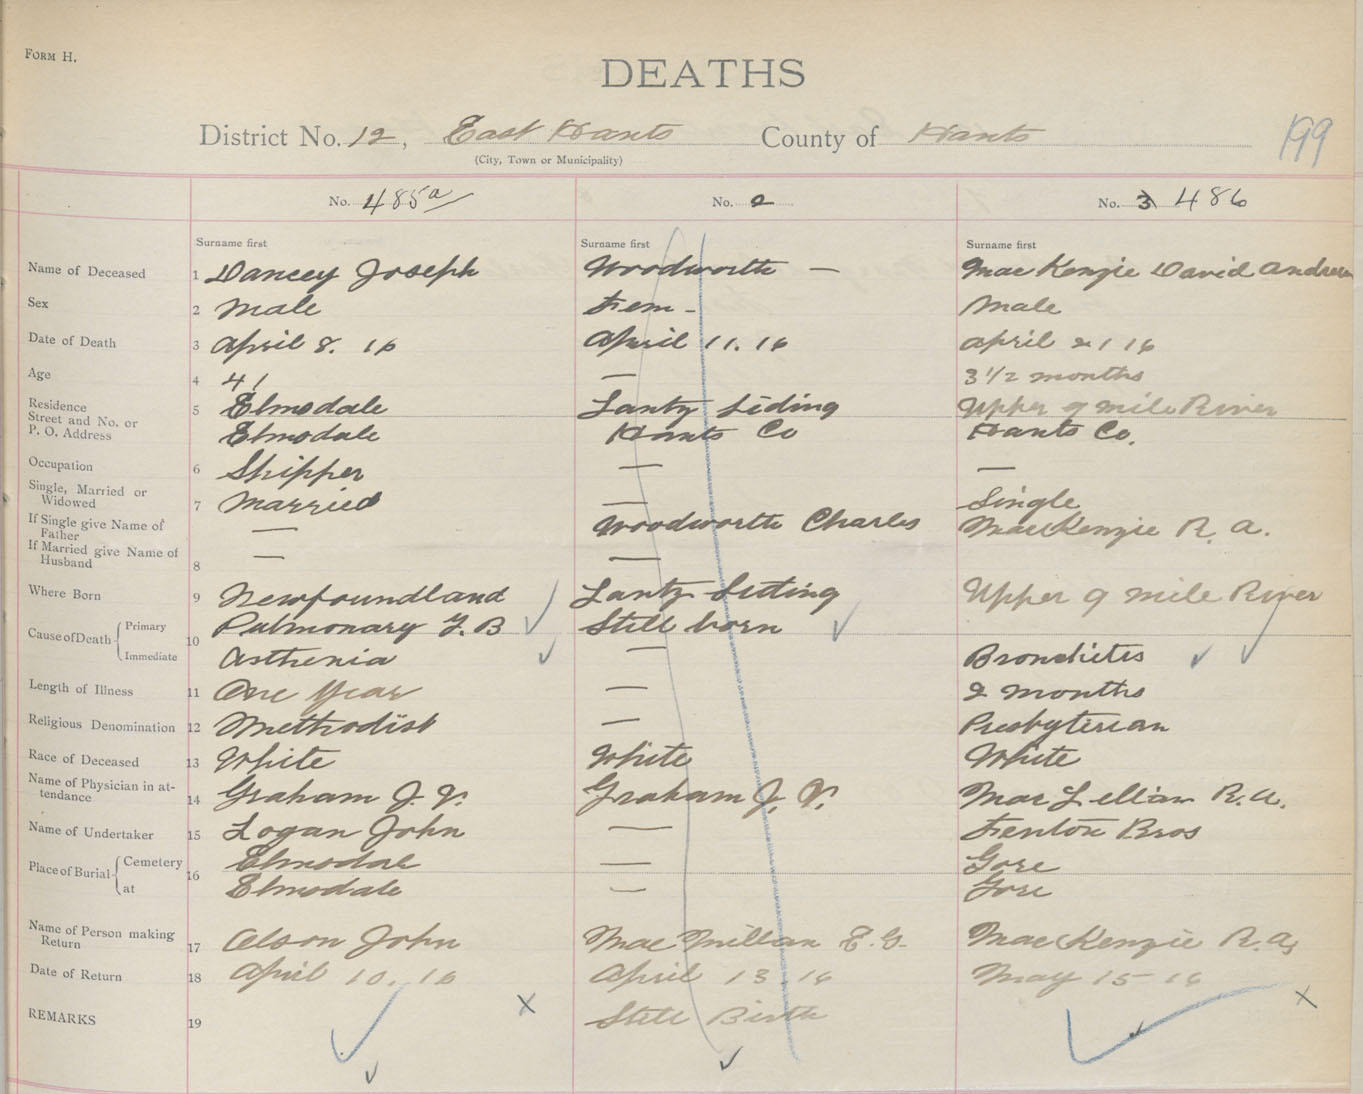 FORM H.
DEATHS
199
District No. 12, East Hants County of Hants
(City, Town or Municipality)
No. 485a No. 2 No. 3 486
Surname first Surname first Surname first
Name of Deceased 1 Dancey Joseph Woodworth — MacKenzie David Andrew
Sex 2 Male Fem - Male
Date of Death 3 April 8. 16 April 11. 16 April 21 16
Age 4 41 — 3 1/2 months
Residence Street and No. or P. O. Address 5 Elmsdale Lantz Siding Upper 9 mile River
Elmsdale Hants Co Hants Co.
Occupation 6 Skipper — —
Single, Married or Widowed 7 Married — Single
If Single give Name of Father — Woodworth Charles MacKenzie R. A.
If Married give Name of Husband 8 — —
Where Born 9 Newfoundland Lantz Siding Upper 9 mile River
Cause of Death Primary 10 Pulmonary T. B Still born
Immediate Asthenia — Bronchietes
Length of Illness 11 One Year — 2 months
Religious Denomination 12 Methodist — Presbyterian
Race of Deceased 13 White White White
Name of Physician in attendance 14 Graham J. V. Graham J. V. MacLellan R. A.
Name of Undertaker 15 Logan John — Fenton Bros
Place of Burial Cemetery 16 Elmsdale — Gore
at Elmsdale — Gore
Name of Person making Return 17 John MacMillan E. G. MacKenzie R. A.
Date of Return 18 April 10. 16 April 13. 16 May 15 16
REMARKS 19 Still Birth